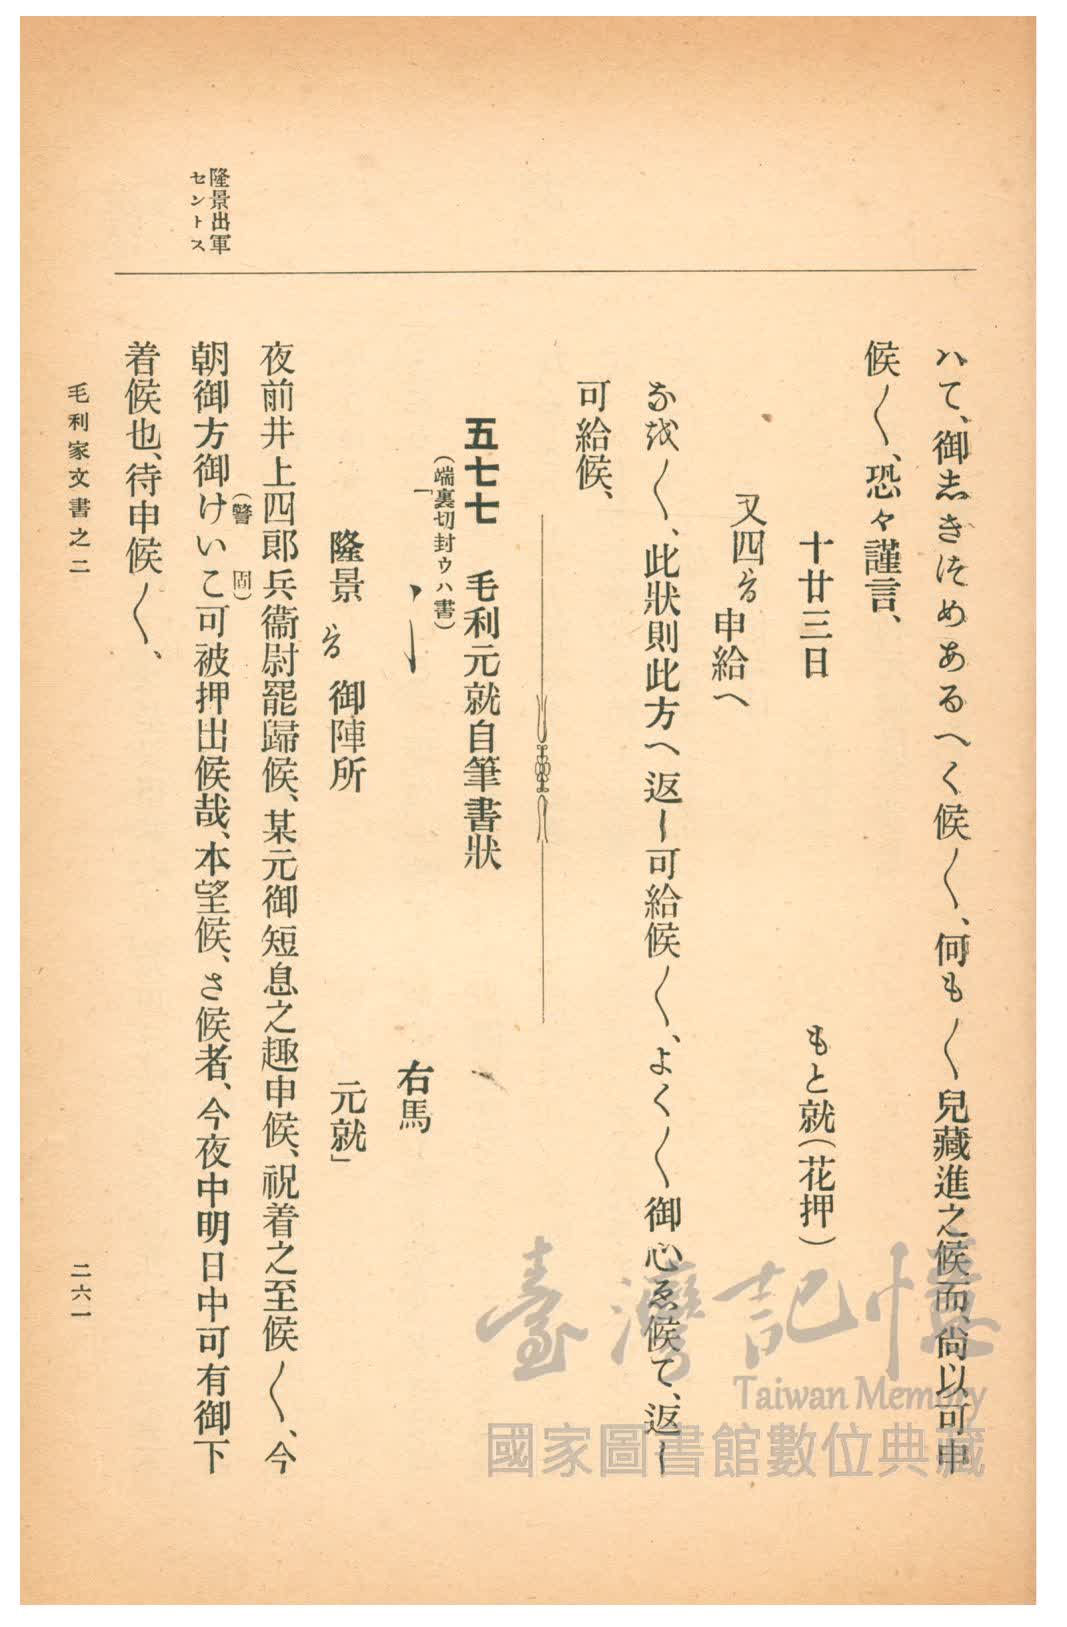 隆景出軍
セントス
ハて、御志きはめあるへく候〱、何も〱兒藏進之候而、尙以可申
候〱、恐々謹言、
十廿三日
もと就(花押)
又四ゟ申給へ
なを〱、此狀則此方へ返し可給候〱、よく〱御心ゑ候て、返し
可給候、
五七七 毛利元就自筆書狀
(端裏切封ウハ書)
「
右馬
隆景ゟ 御陣所
元就」
夜前井上四郞兵衞尉罷歸候、某元御短息之趣申候、祝着之至候〱、今
朝御方御けいこ可被押出候哉、本望候、さ候者、今夜中明日中可有御下
(警 固)
着候也、待申候〱、
毛利家文書之二
二六一
臺灣記憶
Taiwan Memory
國家圖書館數位典藏